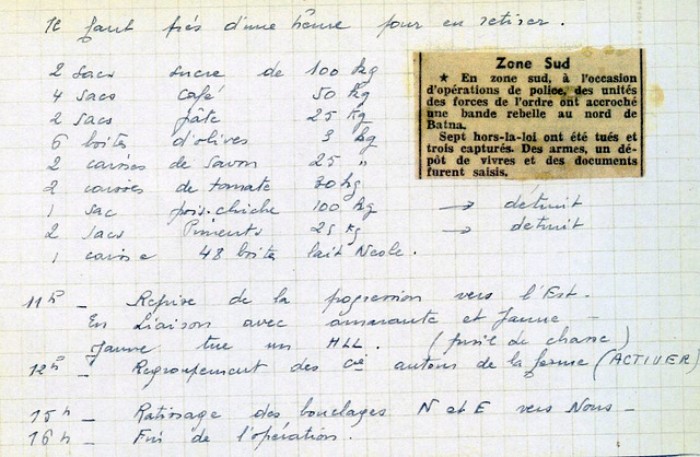 Il faut près d'une heure pour en retirer.
2 sacs sucre de 100 kg
4 sacs café 50 kg
2 sacs pâte 25 kg
6 boites d'olives 3 kg
2 caisses de savon 25 "
2 caisses de tomate 30 kg
1 sac pois-chiche 100 kg → détruit
2 sacs Piments 25 kg → détruit
1 caisse 48 boites lait Neole.
Zone Sud
★ En zone sud, à l'occasion
d'opérations de police, des unités
des forces de l'ordre ont accroché
une bande rebelle au nord de
Batna.
Sept hors-la-loi ont été tués et
trois capturés. Des armes, un dé-
pôt de vivres et des documents
furent saisis.
11h - Reprise de la pogression vers l'Est.
En Liaison avec amarante et Jaune -
Jaune tue un HLL. (fusil de chasse)
12h - Regroupement des Cie autour de la ferme (ACTIVER)
15h - Ratissage des bouclages N et E vers Nous -
16h - Fin de l'opération.